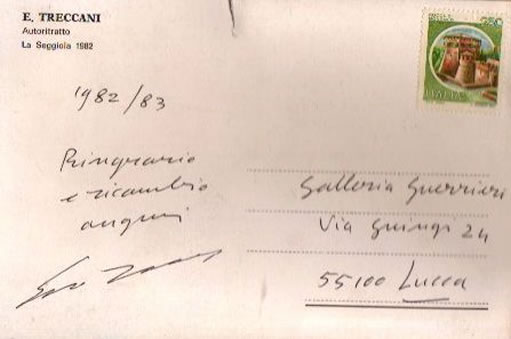 E. TRECCANI
Autoritratto
La Seggiola 1982
1982/83
Ringrazio
e ricambio
auguri
Galleria Guerrieri
Via Guinigi 24
55100 Lucca
ITALIA